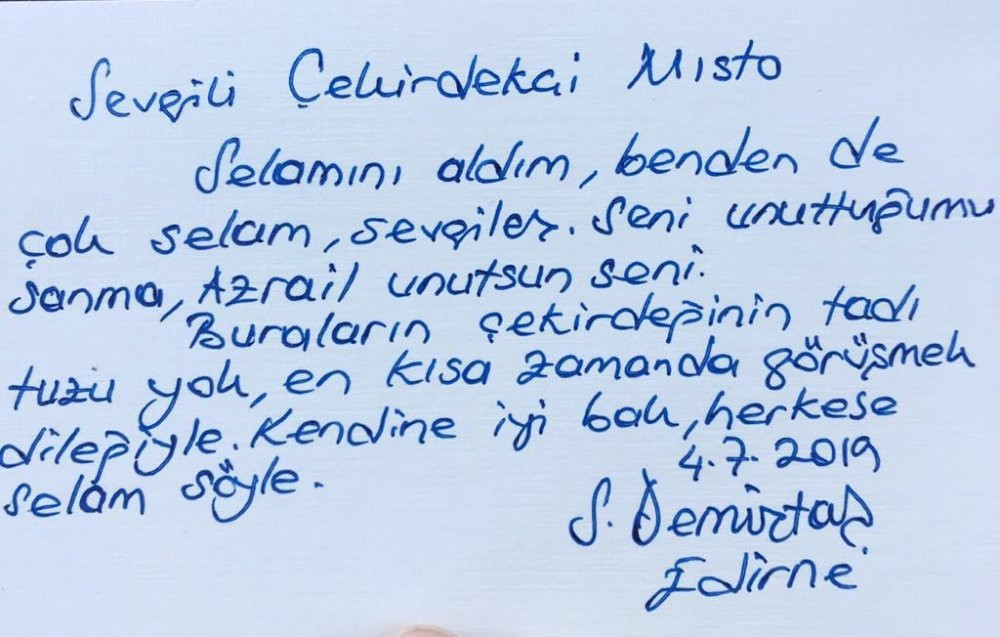 Sevgili Çekirdekçi Mısto
Selamını aldım, benden de
çok selam, sevgiler. Seni unuttuğumu
sanma, Azrail unutsun seni.
Buraların çekirdeğinin tadı
tuzu yok, en kısa zamanda görüşmek
dileğiyle. Kendine iyi bak, herkese
selam söyle.
4.7.2019
S. Demirtaş
Edirne